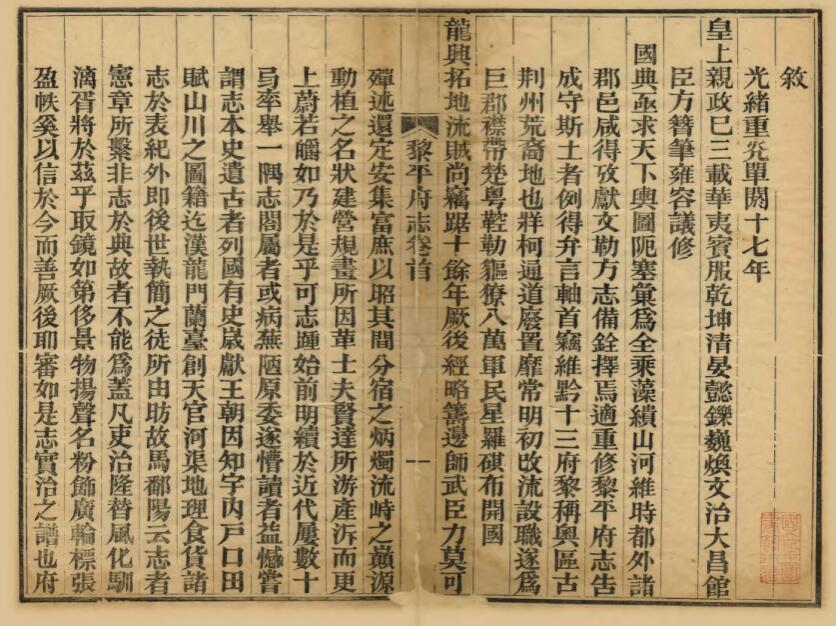 敘
光緒重光單閼十七年
皇上親政巳三載華夷賓服乾坤清晏懿鑠巍煥文治大昌館
臣方簪筆雍容議修
國典亟求天下輿圖阨塞彙爲全乘藻繢山河維時都外諸
郡邑咸得攷獻文勒方志備銓擇焉適重修黎平府志告
成守斯土者例得弁言軸首竊維黔十三府黎稱輿區古
荆州荒裔地也牂柯通道廢置靡常明初改流設職遂爲
巨郡襟帶楚粵鞚勒貙獠八萬軍民星羅碁布開國
龍興拓地流賊尚竊踞十餘年厥後經略籌邊師武臣力莫可
黎平府志卷首
一
殫述還定安集富庶以昭其間分宿之炳燭流峙之巔源
動植之名狀建營規畫所因革士夫賢達所游產泝而更
上蔚若䐶如乃於是乎可志踵始前明續於近代屢數十
弓率舉一隅志閣屬者或病蕪陋原委遂懵讀者益憾嘗
謂志本史遺古者列國有史歲獻王朝因知宇內戸口田
賦山川之圖籍迄漢龍門蘭臺創天官河渠地理食貨諸
志於表紀外卽後世執簡之徒所由昉故馬鄱陽云志者
憲章所繫非志於典故者不能爲蓋凡吏治隆替風化馴
漓胥將於茲乎取鏡如第侈景物揚聲名粉飾廣輪標張
盈帙奚以信於今而善厥後耶審如是志實治之譜也府